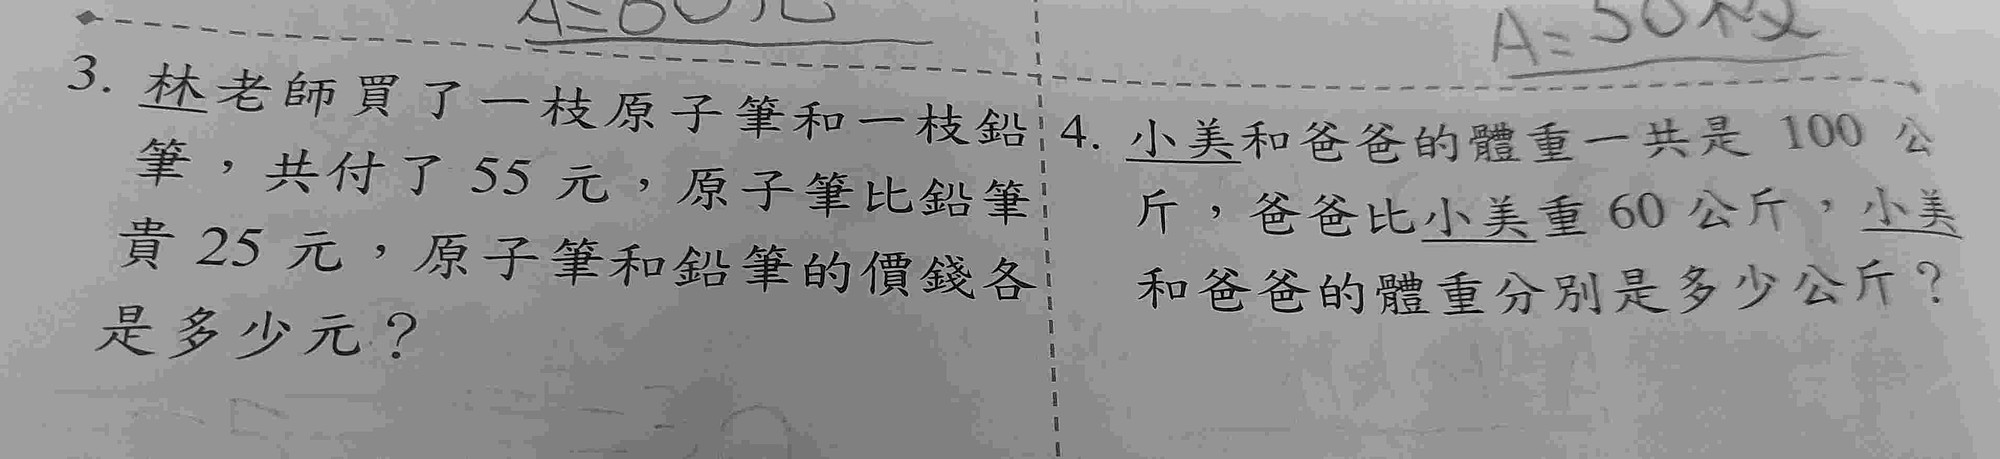 3. 林老師買了一枝原子筆和一枝鉛
筆，共付了 55 元，原子筆比鉛筆
貴 25 元，原子筆和鉛筆的價錢各
是多少元？
A=50枚
4. 小美和爸爸的體重一共是 100 公
斤，爸爸比小美重 60 公斤，小美
和爸爸的體重分別是多少公斤？